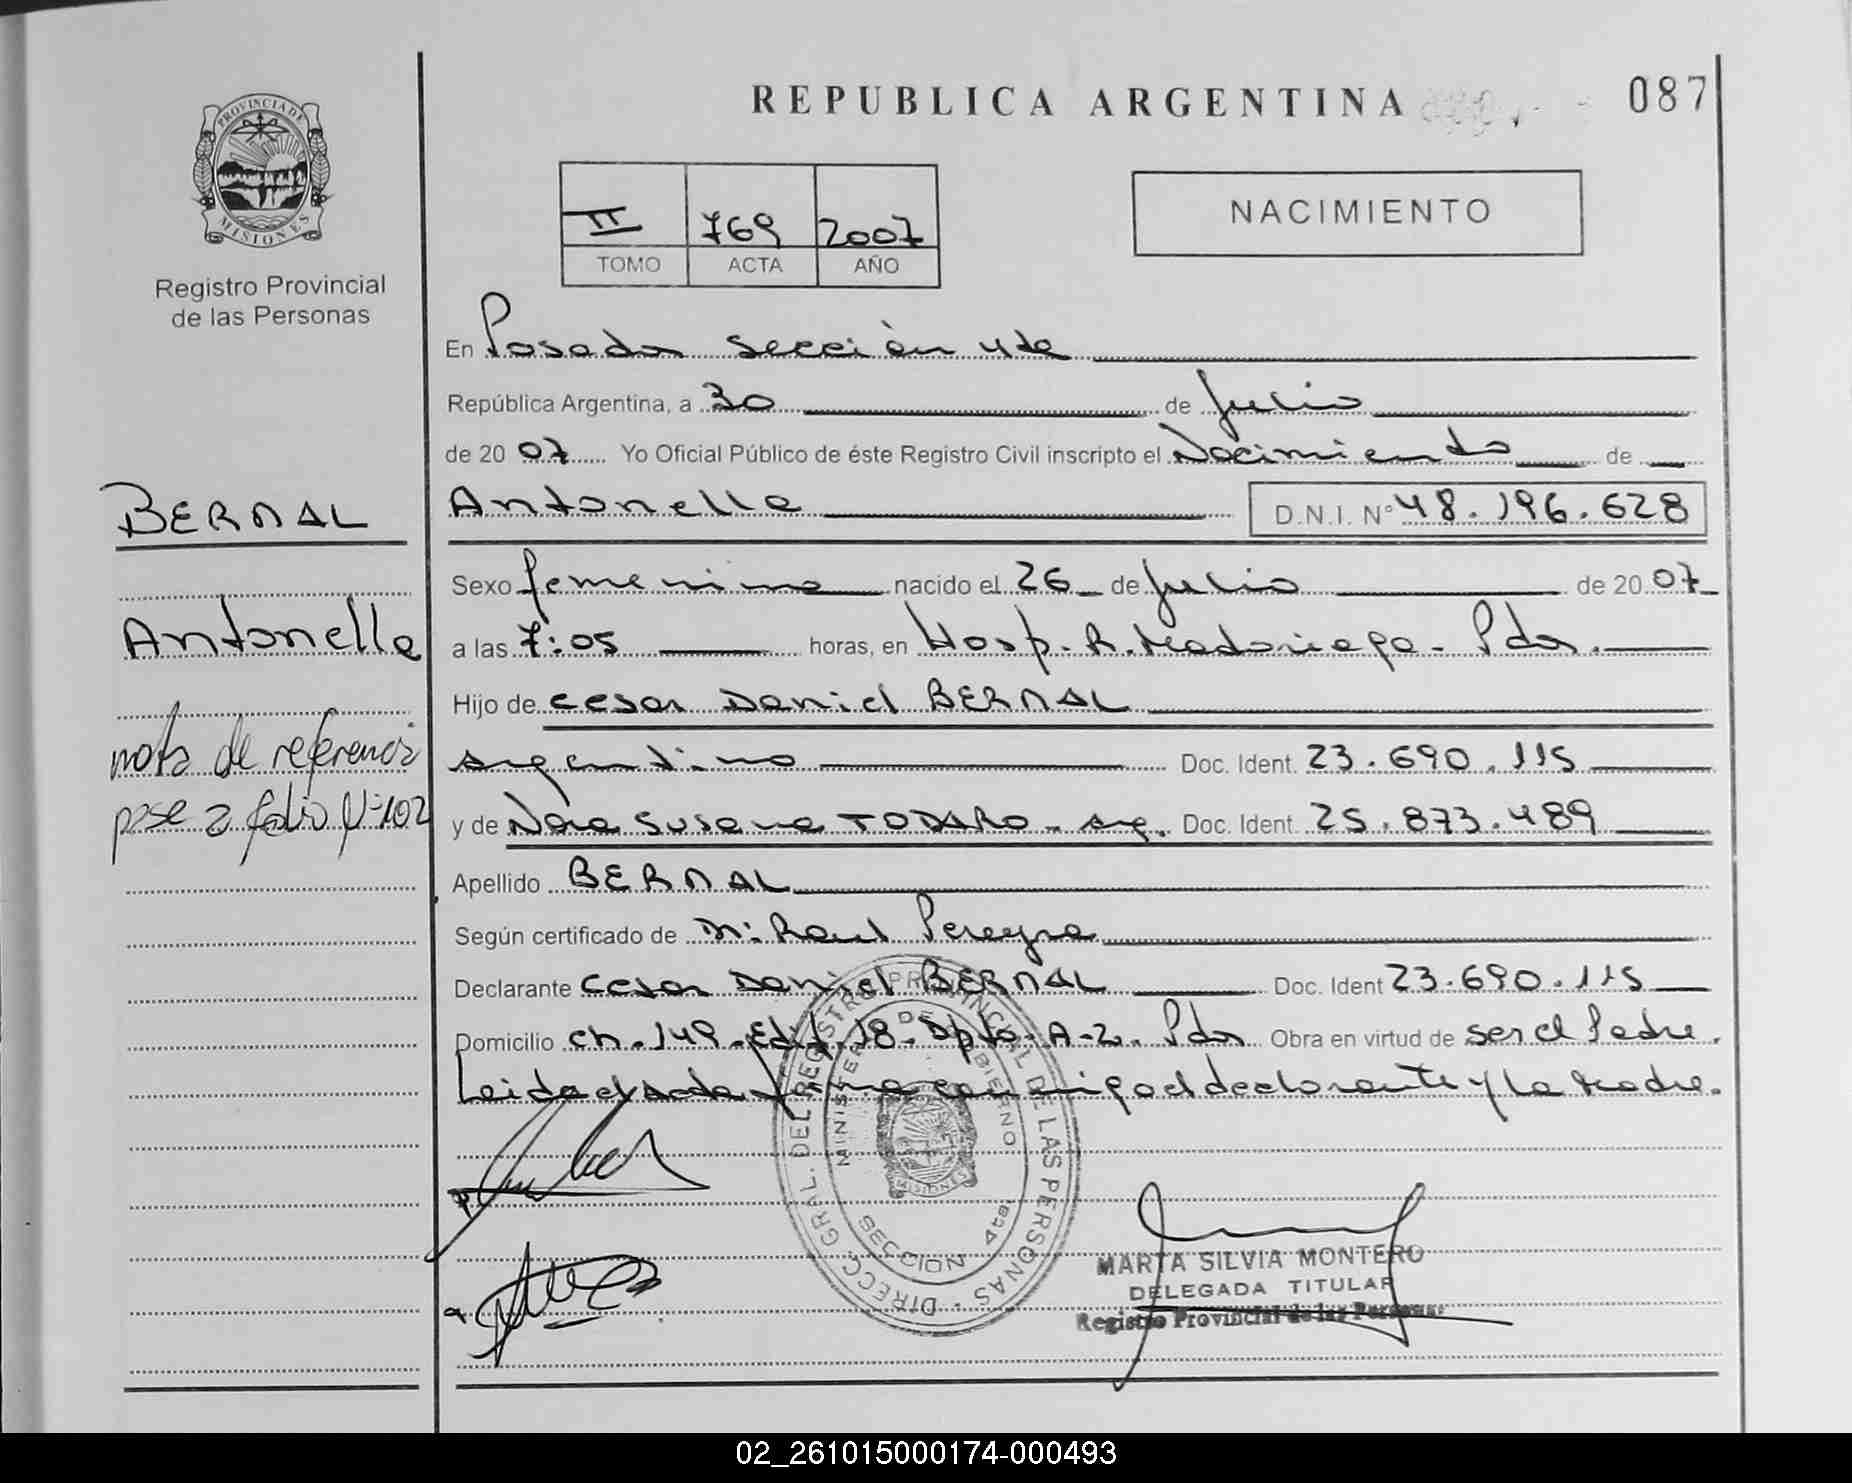 REPUBLICA ARGENTINA
087
PROVINCIA DE
MISIONES
Registro Provincial
de las Personas
II 769 2007
TOMO ACTA AÑO
NACIMIENTO
En Posadas Sección 4ta
República Argentina, a 30 de Julio
de 20 07 Yo Oficial Público de éste Registro Civil inscripto el Nacimiento de
BERNAL
Antonella D.N.I. Nº 48.196.628
Sexo femenino nacido el 26 de Julio de 20 07
Antonella
a las 7:05 horas, en Hosp. R. Madariaga - Pdas.
Hijo de Cesar Daniel BERNAL
nota de referencia
argentino Doc. Ident. 23.690.115
pase a folio Nº 102
y de Nora Susana TODARO - arg. Doc. Ident. 25.873.489
Apellido BERNAL
Según certificado de Dr. Raul Pereyra
Declarante Cesar Daniel BERNAL Doc. Ident 23.690.115
Domicilio Ch. 149 - Edif. 18 - Dpto. A-2. Pdas Obra en virtud de ser el Padre.
Leida el acta firma conmigo el declarante y la Madre.
DIRECC. GRAL. DEL REGISTRO PROVINCIAL DE LAS PERSONAS
MINISTERIO DE GOBIERNO
MISIONES
SECCION 4ta
MARTA SILVIA MONTERO
DELEGADA TITULAR
Registro Provincial de las Personas
02_261015000174-000493